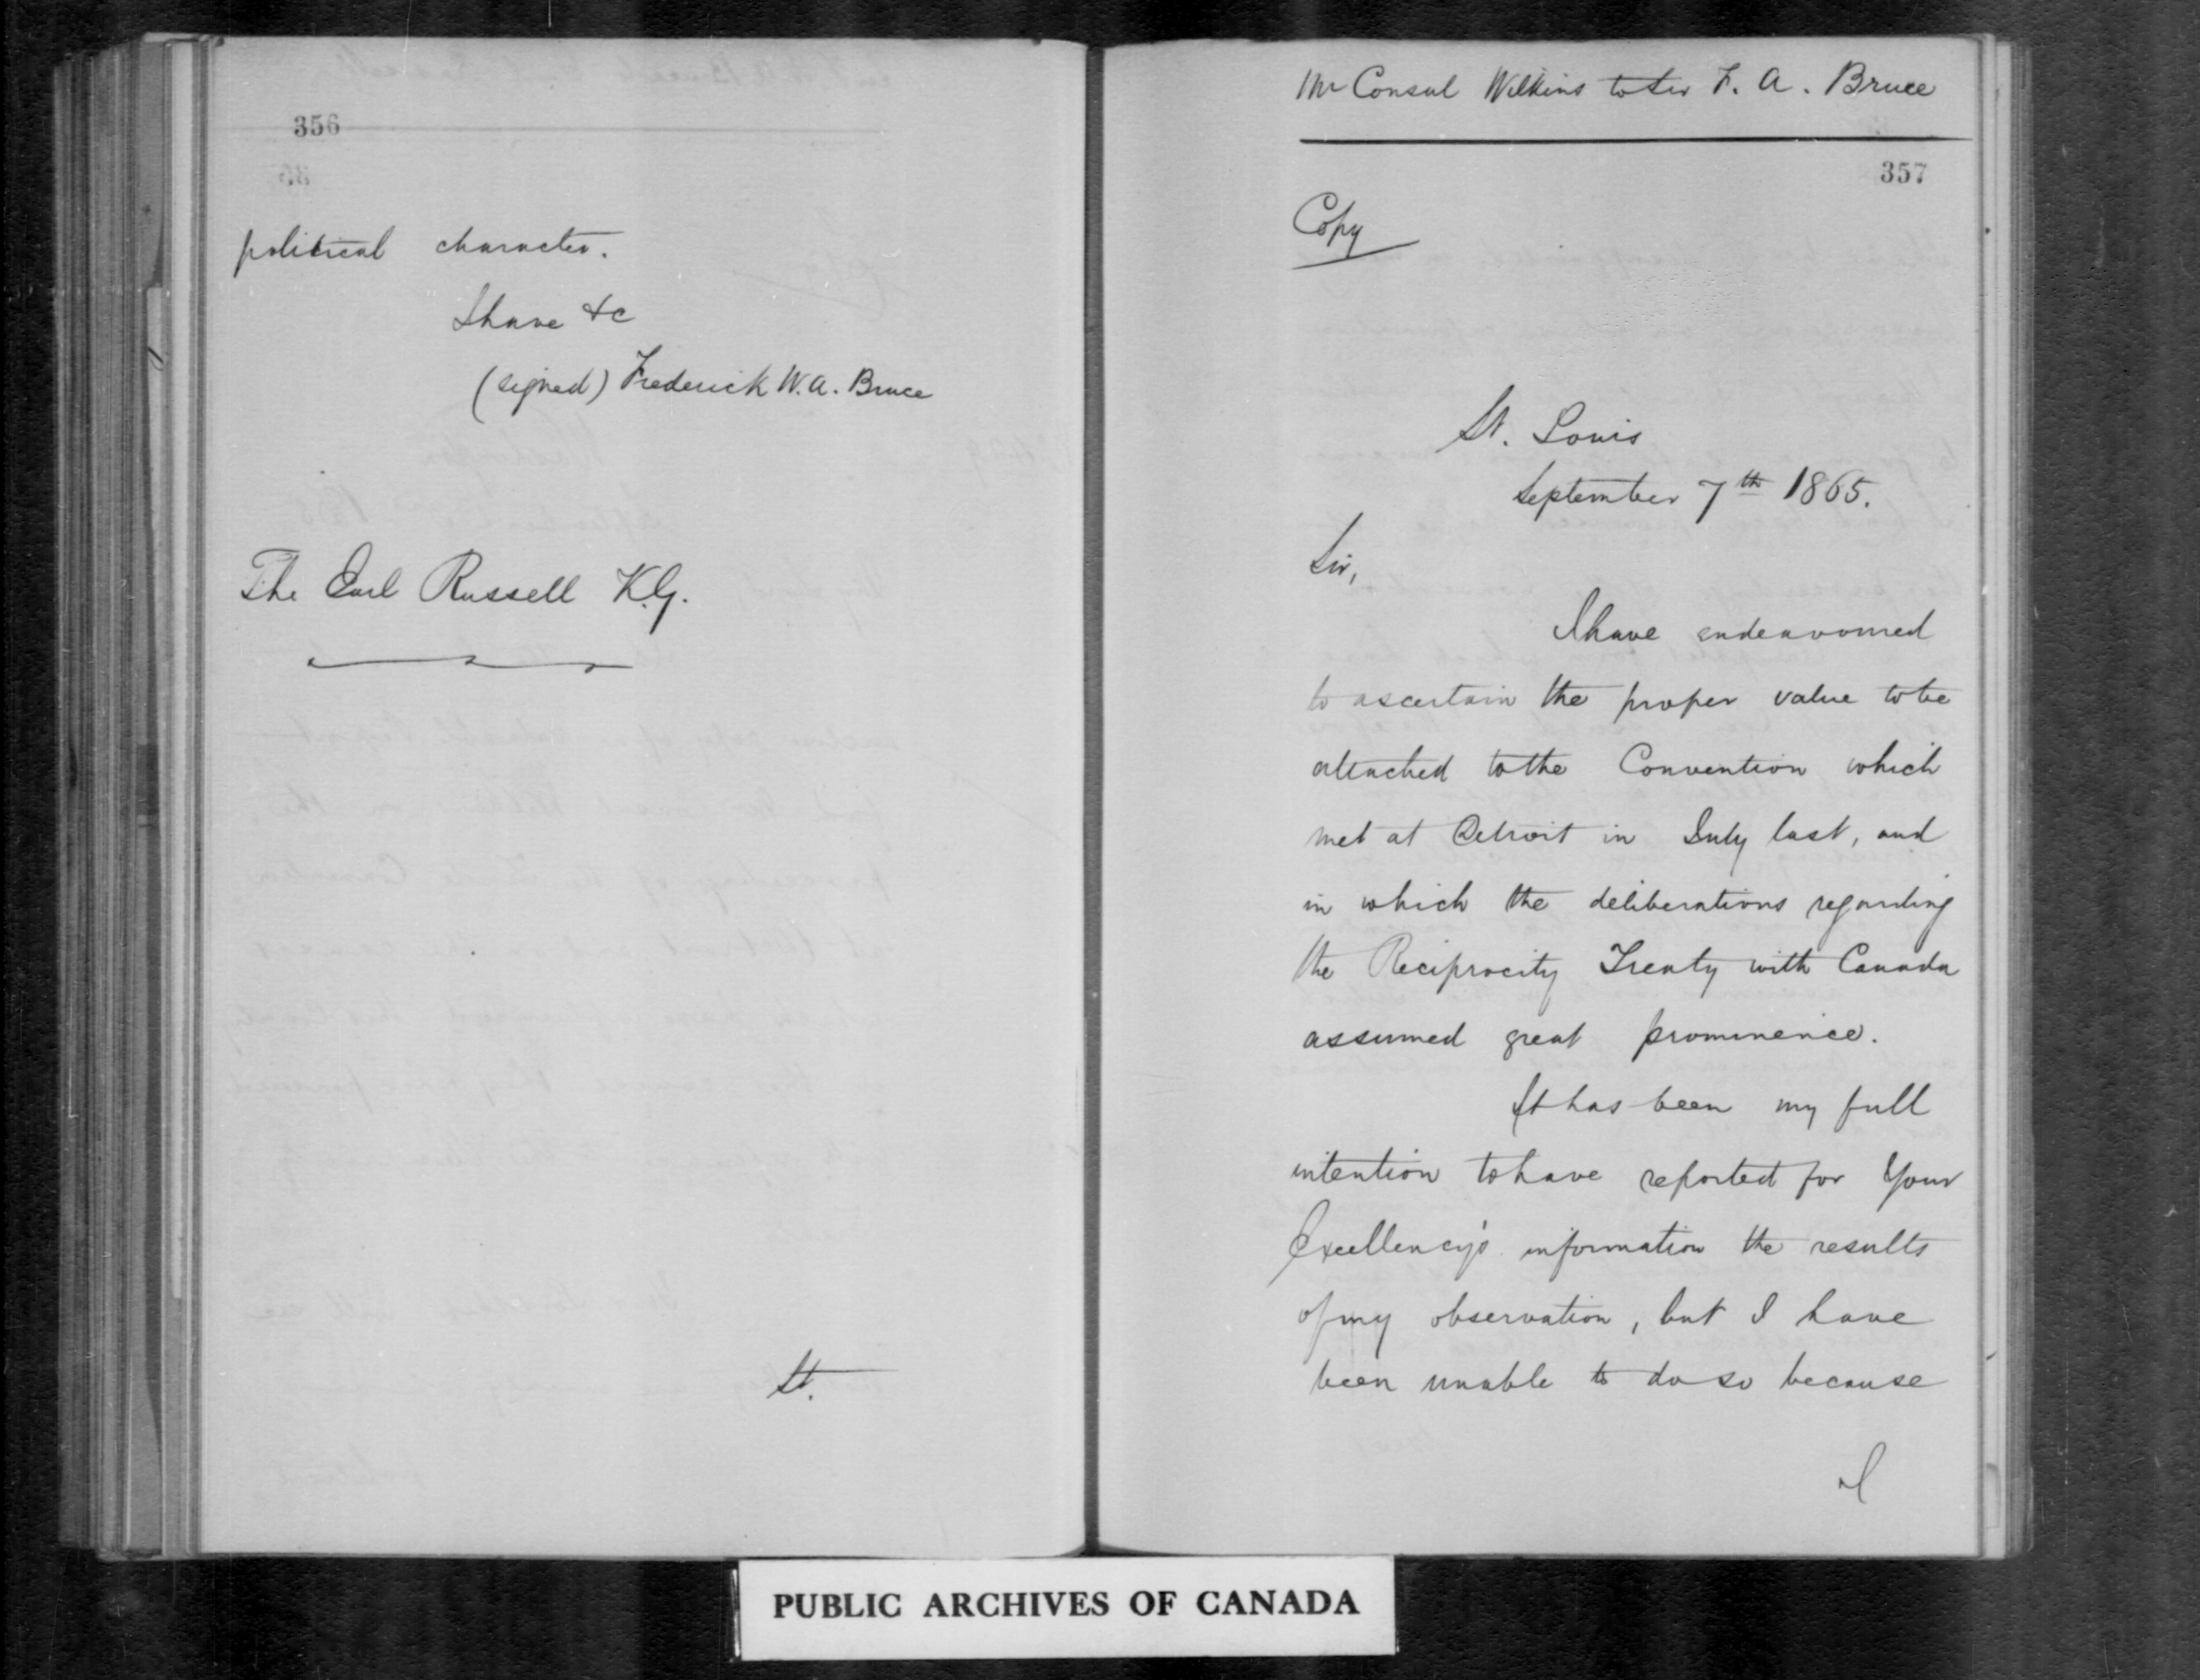 356
political character.
I have &c
(signed) Frederick W. A. Bruce
The Earl Russell K.G.
St.
Mr Consul Wilkins to Sir F. A. Bruce
357
Copy
St. Louis
September 7th 1865.
Sir,
I have endeavoured
to ascertain the proper value to be
attached to the Convention which
met at Detroit in July last, and
in which the deliberations regarding
the Reciprocity Treaty with Canada
assumed great prominence.
It has been my full
intention to have reported for Your
Excellency's information the results
of my observation, but I have
been unable to do so because
I
PUBLIC ARCHIVES OF CANADA